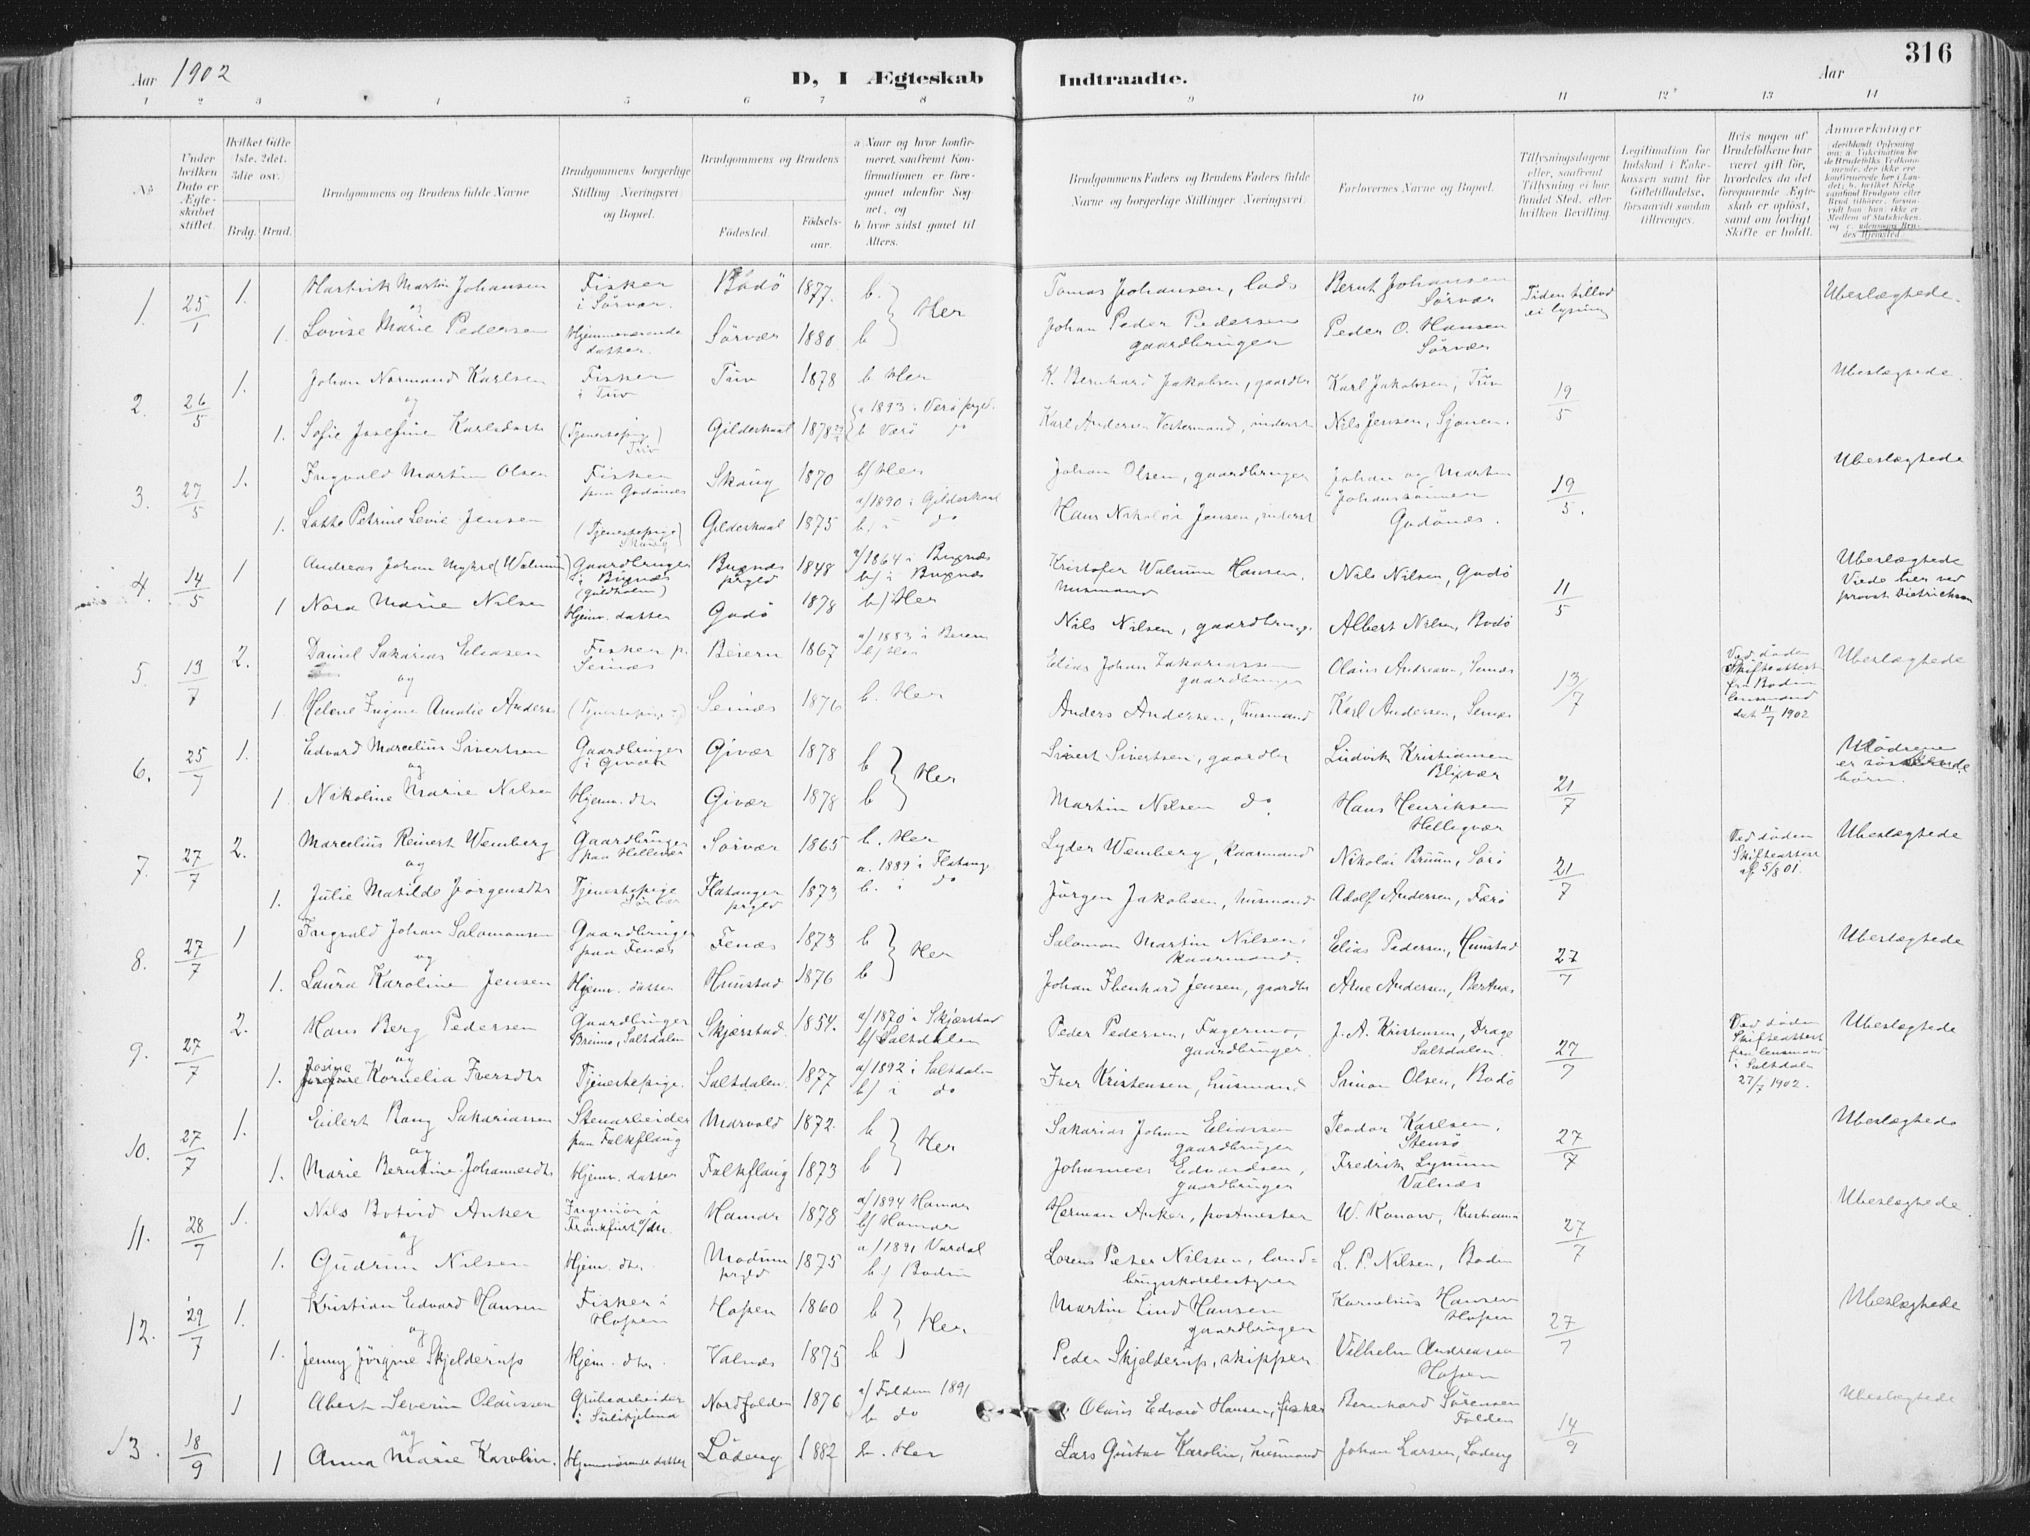 Aar 1902
D, I Ægteskab
Indtraadte.
Aar
316
1 2 3 4 5 6 7 8 9 10 11 12 13 14
№
Under hvilken Dato er Ægteskabet stiftet
Hvilket Gifte 1ste, 2det, 3die osv.
Brdg. Brud.
Brudgommens og Brudens fulde Navne
Brudgommens borgerlige Stilling Næringsvei og Bopæl.
Brudgommens og Brudens
Fødested.
Fødselsaar.
a Naar og hvor konfirmeret, saafremt Konfirmationen er foregaaet udenfor Sognet, og
b hvor sidst gaaet til Alters.
Brudgommens Faders og Brudens Faders fulde Navne og borgerlige Stillinger Næringsvei
Forlovernes Navne og Bopæl.
Tillysningsdagene eller, saafremt Tillysning ei har fundet Sted, efter hvilken Bevilling.
Legitimation for Indskud i Enkekassen samt for Giftetilladelse, forsaavidt saadan tiltrænges.
Hvis nogen af Brudefolkene har været gift før, hvorledes da det foregaaende Ægteskab er opløst, samt om lovligt Skifte er holdt.
Anmærkninger
1. 25/1 1. Hartvik Martin Johansen Fisker i Sørvær. Bodø 1877. b. Her Tomas Johansen, lods Bernt Johansen Sørvær Tiden tillod ei lysning Ubeslægtede.
og
1. Lovise Marie Pedersen Hjemmeværende datter. Sørvær 1880 b Johan Peder Pedersen gaardbruger Peder O. Hansen Sørvær
2. 26/5 1. Johan Normand Karlsen Fisker i Tuv Tuv 1878 b. Her K. Bernhard Jakobsen, gaardbr Karl Jakobsen, Tuv 19/5 Ubeslægtede.
og
1. Sofie Josefine Karlsdatter (Tjenestepige Tuv) Gildeskaal 1878 a 1893 i Værø prgd. b Værø do Karl Andersen Vestermand, inderst Nils Jensen, Sjonen.
3. 27/5 1. Ingvald Martin Olsen Fisker paa Godønes Skaug 1870 b/ Her Johan Olsen, gaardbruger Johan og Martin Johanssønner Godønes. 19/5. Ubeslægtede
1. Lotte Petrine Levie Jensen (Tjenestepige Skaug) Gildeskaal 1875 a/ 1890 i Gildeskaal b/ i do Hans Nikolai Jensen, inderst
4. 14/5 1 Andreas Johan Myhre (Walnum) Gaardbruger i Buxnæs (Guldholm) Buxnæs prgld 1848 a/ 1864 i Buxnæs b/ i Buxnæs Kristofer Walnum Hansen. husmand Nils Nilsen, Godø 11/5 Ubeslægtede Viede her ved provst Dietrichson
1 Nora Marie Nilsen Hjemv. datter Godø 1878 b/ Her Nils Nilsen, gaardbrug. Albert Nilsen, Bodø
5. 13/7 2. Daniel Sakarias Eliasen Fisker p. Seinæs Beiern 1867 a/ 1883 i Beiern b/ Her Elias Johan Zakariassen gaardbruger Olaus Andreasen, Seines 13/7 Ved døden Skifteattest fra Bodin lensmand dat 11/7 1902 Ubeslægtede
og
1. Helene Ingine Amalie Anders (Tjenestepige) Seines 1876 b. Her Anders Andersen, husmand Karl Andersen, Seines
6. 25/7 1. Edvard Marcelius Sivertsen Gaardbruger i Givær Givær 1878 b Her Sivert Sivertsen, gaardbr Ludvik Kristiansen Blixvær 21/7 børn.
og
1 Nikoline Marie Nilsen Hjemv. dtr Givær 1878 b Martin Nilsen do Hans Henriksen Helligvær
7. 27/7 2. Marcelius Reinert Wemberg Gaardbruger paa Helligvær Sørvær 1865 b. Her Lyder Wemberg, kaarmand Nikolai Bruun, Sørø 21/7 Ved døden Skifteattest af 5/8 01. Ubeslægtede
og
1. Julie Matilde Jørgensdtr Tjenestepige Flatanger prgld 1873 a. 1889 i Flatang. b. i do Jørgen Jakobsen, husmand Adolf Andersen, Færø
8. 27/7 1 Ingvald Johan Salomonsen Gaardbruger paa Fenæs Fenæs 1873 b Her Salomon Martin Nilsen. kaarmand. Elias Pedersen, Hunstad 27/7 Ubeslægtede
og
1. Laura Karoline Jensen Hjemv. datter Hunstad 1876 b Johan Ebenhard Jensen, gaardbr Arne Andersen, Bertnes
9. 27/7 2. Hans Berg Pedersen Gaardbruger Brenne, Saltdalen Skjærstad. 1854. a/ 1870 i Skjærstad b/ Saltdalen Peder Pedersen, Fagermo, gaardbruger. J. A. Kristensen, Drage Saltdalen. 27/7 Ved døden Skifteattest fra lensmand i Saltdalen 27/7 1902. Ubeslægtede
og
1. Josine Kornelia Iversdtr Tjenestepige. Saltdalen. 1877 a/ 1892 i Saltdalen b/ i do Iver Kristensen, husmand Simon Olsen, Bodø
10. 27/7 1. Eilert Rang Sakariassen Stenarbeider paa Falkflaug Marvold 1872. b Her Sakarias Johan Eliassen gaardbruger Teodor Karlsen, Stensø 27/7 Ubeslægtede
og
1. Marie Berntine Johannesdtr Hjemv. datter Falkflaug 1873 b Johannes Edvardsen, gaardbruger Fredrik Lynum Valnæs
11. 28/7 1. Nils Botvid Anker Ingeniør i Frankfurt a/M. Hamar 1878 a/ 1894 Hamar b/ Hamar Herman Anker, postmester W. Konow, Kristiania 27/7 Ubeslægtede.
og
1. Gudrun Nilsen Hjem. dtr. Modum prgld 1875 a/ 1891 Vardal b/ Bodin Lorens Peter Nilssen, landbrugsskolebestyrer L. P. Nilsen, Bodin
12. 29/7 1. Kristian Edvard Hansen Fisker i Hopen Hopen 1860 b Her Martin Lind Hansen gaardbruger Kornelius Hansen Hopen 27/7 Ubeslægtede
og
1. Jenny Jørgine Skjelderup Hjem. dtr. Valnæs 1875 b Peder Skjelderup, skipper Vilhelm Andreassen Hopen
13. 18/9 1 Albert Severin Olaussen Grubearbeider i Sulitjelma Nordfolden 1876 a/ Folden 1891 b do Olaus Edvard Hansen, fisker Bernhard Sørensen Folden 14/9 Ubeslægtede
og
1 Anna Marie Karolin. Hjemmeværende datter Lødeng 1882 b. Her Lars Gustav Karolin, husmand Johan Larsen, Lødeng